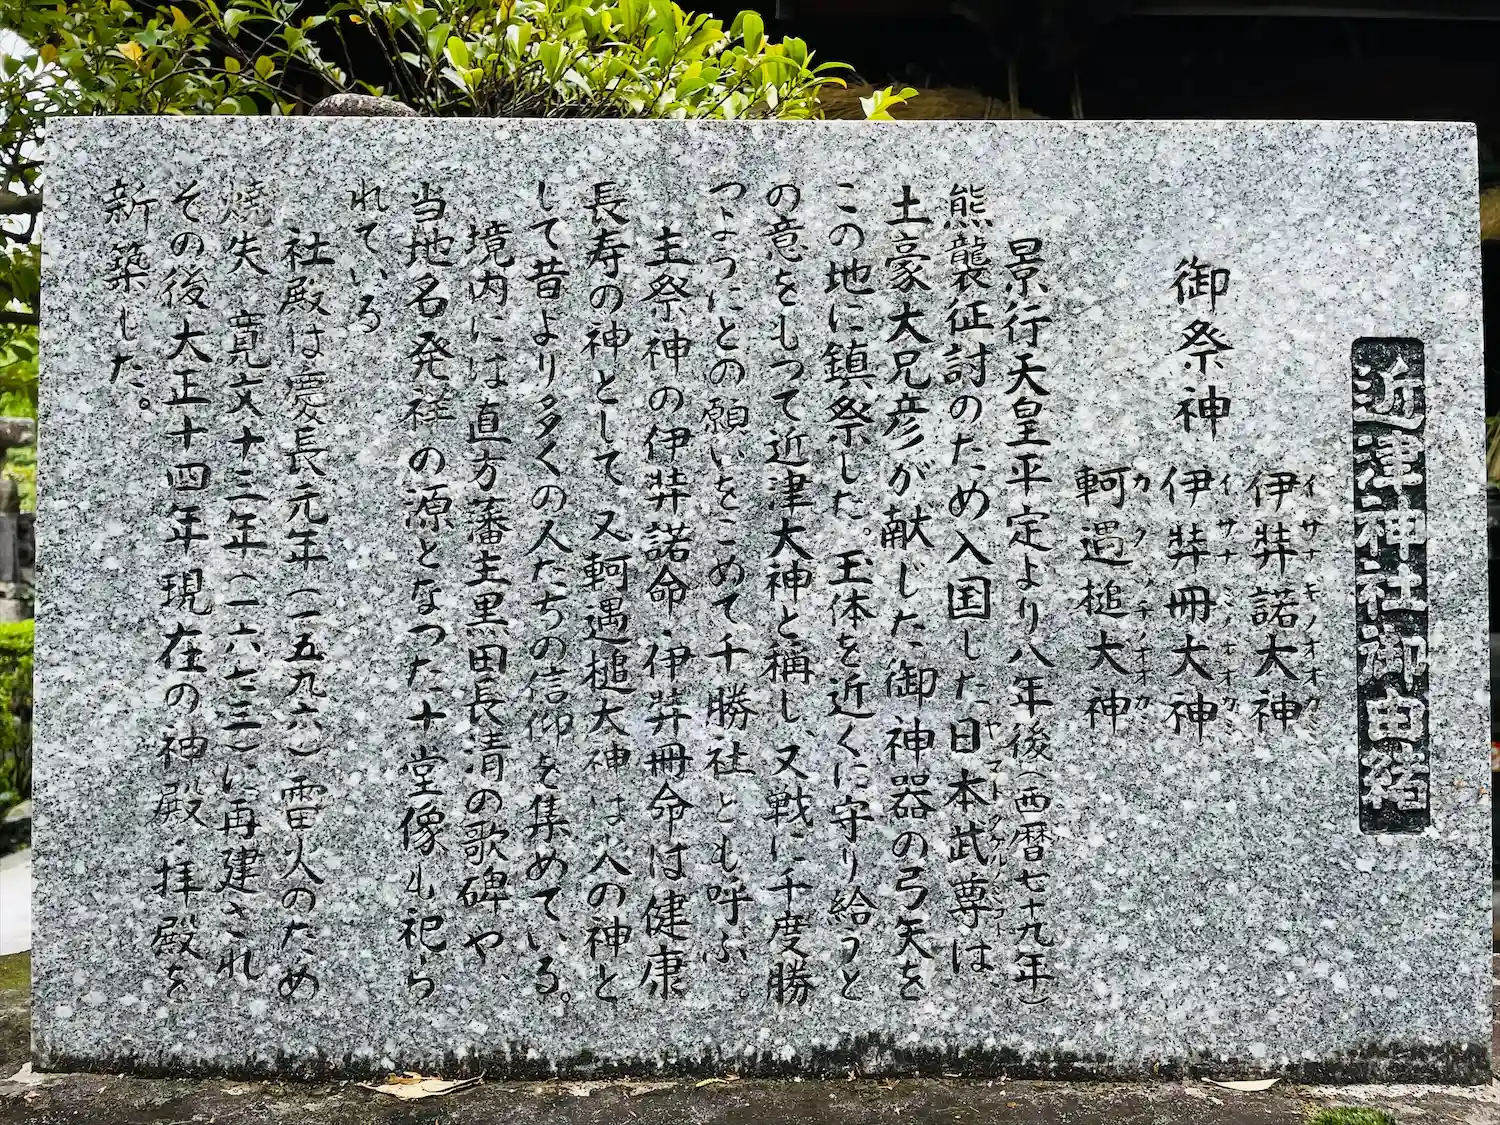 近津神社御由緒
伊弉諾大神
イサナキノオオカミ
御祭神 伊弉冊大神
イサナミノオオカミ
軻遇槌大神
カクノチノオオカミ
景行天皇平定より八年後(西暦七十九年)
熊襲征討のため入国した日本武尊は
ヤマトタケルノミコト
土豪大兄彦が献じた御神器の弓矢を
この地に鎮祭した。玉体を近くに守り給うと
の意をもって近津大神と称し、又戦に千度勝
つようにとの願いをこめて千勝社とも呼ぶ。
主祭神の伊弉諾命・伊弉冊命は健康
長寿の神として、又軻遇槌大神は火の神と
して昔より多くの人たちの信仰を集めている。
境内には直方藩主黒田長清の歌碑や、
当地名発祥の源となった十堂像も祀ら
れている
社殿は慶長元年(一五九六)雷火のため
焼失 寛文十三年(一六七三)に再建され
その後大正十四年現在の神殿・拝殿を
新築した。